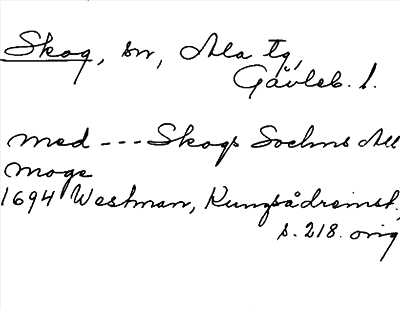 Skog, sn, Ala tg,
Gävleb. l.
med --- Skogs Sochns All
moge
1694 Westman, Kungsådreinst.,
s. 218. orig